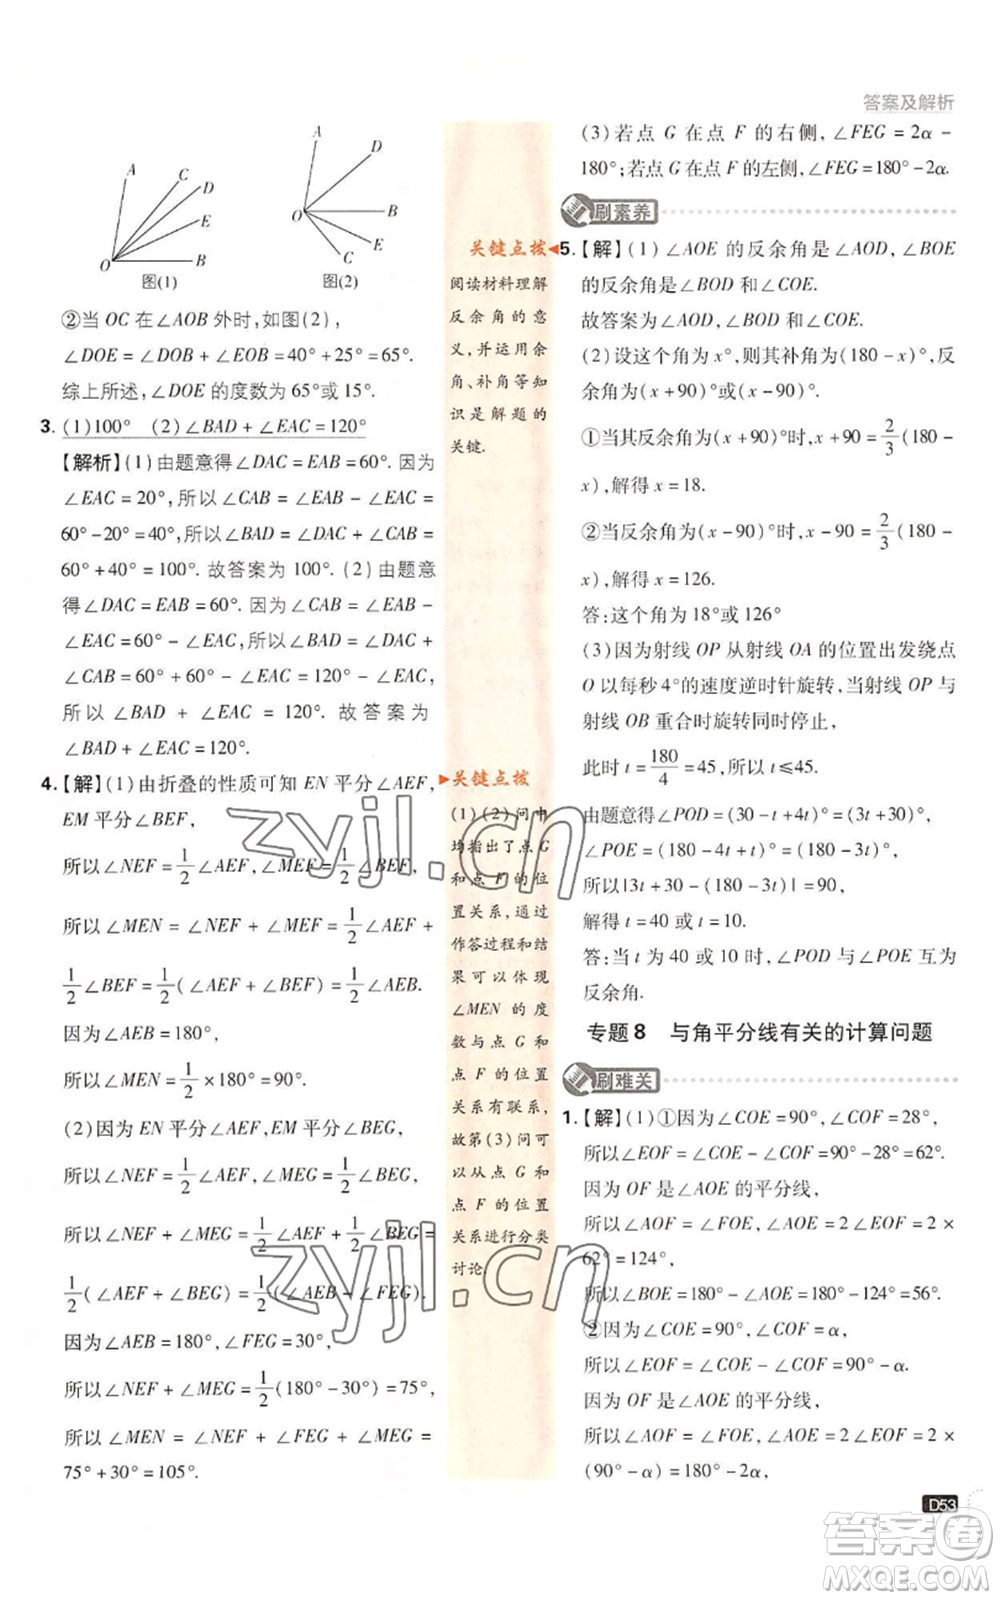 答案及解析
A
C
D
E
B
O
图(1)
A
D
B
E
C
O
图(2)
②当 OC 在∠AOB 外时,如图(2),
∠DOE = ∠DOB + ∠EOB = 40° + 25° = 65°.
综上所述,∠DOE 的度数为 65°或 15°.
3. (1)100° (2)∠BAD + ∠EAC = 120°
【解析】(1)由题意得∠DAC = EAB = 60°. 因为
∠EAC = 20°,所以 ∠CAB = ∠EAB - ∠EAC =
60° - 20° = 40°,所以 ∠BAD = ∠DAC + ∠CAB =
60° + 40° = 100°. 故答案为 100°. (2)由题意
得∠DAC = EAB = 60°. 因为 ∠CAB = ∠EAB -
∠EAC = 60° - ∠EAC,所以 ∠BAD = ∠DAC +
∠CAB = 60° + 60° - ∠EAC = 120° - ∠EAC,
所以 ∠BAD + ∠EAC = 120°. 故答案为
∠BAD + ∠EAC = 120°.
4. 【解】(1)由折叠的性质可知 EN 平分∠AEF,
EM 平分∠BEF,
所以∠NEF = 1/2 ∠AEF,∠MEF = 1/2 ∠BEF,
所以 ∠MEN = ∠NEF + ∠MEF = 1/2 ∠AEF +
1/2 ∠BEF = 1/2 (∠AEF + ∠BEF) = 1/2 ∠AEB.
因为∠AEB = 180°,
所以∠MEN = 1/2 × 180° = 90°.
(2)因为 EN 平分∠AEF,EM 平分∠BEG,
所以∠NEF = 1/2 ∠AEF,∠MEG = 1/2 ∠BEG,
所以∠NEF + ∠MEG = 1/2 ∠AEF + 1/2 ∠BEG =
1/2 (∠AEF + ∠BEG) = 1/2 (∠AEB - ∠FEG).
因为∠AEB = 180°,∠FEG = 30°,
所以∠NEF + ∠MEG = 1/2 (180° - 30°) = 75°,
所以 ∠MEN = ∠NEF + ∠FEG + ∠MEG =
75° + 30° = 105°.
关键点拨
阅读材料理解
反余角的意
义,并运用余
角、补角等知
识是解题的
关键.
关键点拨
(1)(2)问中
均指出了点 G
和点 F 的位
置关系,通过
作答过程和结
果可以体现
∠MEN 的度
数与点 G 和
点 F 的位置
关系有联系,
故第(3)问可
以从点 G 和
点 F 的位置
关系进行分类
讨论.
(3)若点 G 在点 F 的右侧,∠FEG = 2α -
180°;若点 G 在点 F 的左侧,∠FEG = 180° - 2α.
刷素养
5. 【解】(1)∠AOE 的反余角是∠AOD,∠BOE
的反余角是∠BOD 和∠COE.
故答案为∠AOD,∠BOD 和∠COE.
(2)设这个角为 x°,则其补角为(180 - x)°,反
余角为(x + 90)°或(x - 90)°.
①当其反余角为(x + 90)°时,x + 90 = 2/3 (180 -
x),解得 x = 18.
②当反余角为(x - 90)°时,x - 90 = 2/3 (180 -
x),解得 x = 126.
答:这个角为 18°或 126°
(3)因为射线 OP 从射线 OA 的位置出发绕点
O 以每秒 4°的速度逆时针旋转,当射线 OP 与
射线 OB 重合时旋转同时停止,
此时 t = 180/4 = 45,所以 t ≤ 45.
由题意得∠POD = (30 - t + 4t)° = (30 + 3t)°,
∠POE = (180 - 4t + t)° = (180 - 3t)°,
所以|3t + 30 - (180 - 3t)| = 90,
解得 t = 40 或 t = 10.
答:当 t 为 40 或 10 时,∠POD 与∠POE 互为
反余角.
专题 8 与角平分线有关的计算问题
刷难关
1. 【解】(1)①因为∠COE = 90°,∠COF = 28°,
所以∠EOF = ∠COE - ∠COF = 90° - 28° = 62°.
因为 OF 是∠AOE 的平分线,
所以 ∠AOF = ∠FOE,∠AOE = 2∠FOE = 2 ×
62° = 124°,
所以∠BOE = 180° - ∠AOE = 180° - 124° = 56°.
②因为∠COE = 90°,∠COF = α,
所以∠EOF = ∠COE - ∠COF = 90° - α.
因为 OF 是∠AOE 的平分线,
所以 ∠AOF = ∠EOF,∠AOE = 2∠EOF = 2 ×
(90° - α) = 180° - 2α,
D53
zyjl.cn
zyjl.cn
答案圈
MXQE.COM